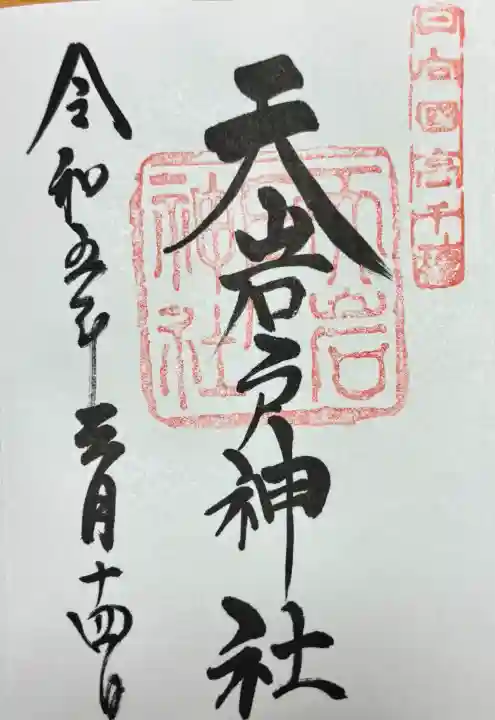 日向國高千穂
天岩戸神社
天岩戸神社
令和五年三月十四日